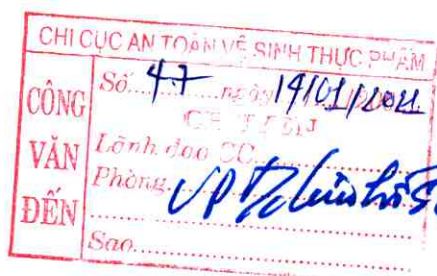 CHI CỤC AN TOÀN VỆ SINH THỰC PHẨM
CÔNG VĂN ĐẾN
Số 47 ngày 14/01/2021
CHUYỂN
Lãnh đạo CC
Phòng VP
Sao